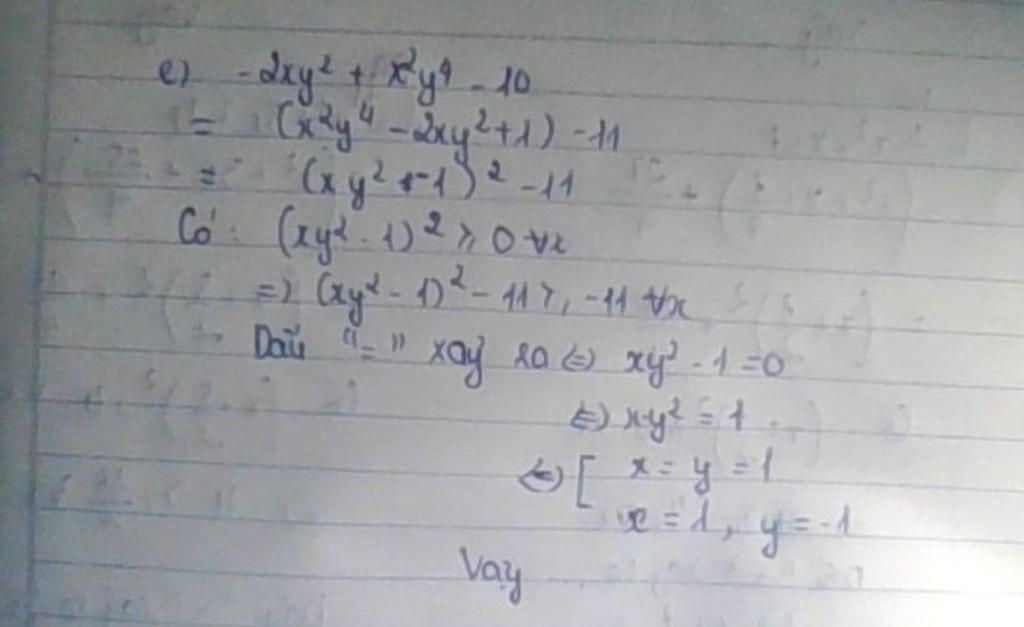 e) -2xy² + x²y⁴ - 10
= (x²y⁴ - 2xy² + 1) - 11
= (xy² - 1)² - 11
Có: (xy² - 1)² ⩾ 0 ∀x
=> (xy² - 1)² - 11 ⩾ -11 ∀x
Dấu "=" xảy ra <=> xy² - 1 = 0
<=> xy² = 1
<=> [ x = y = 1
x = 1, y = -1
Vậy